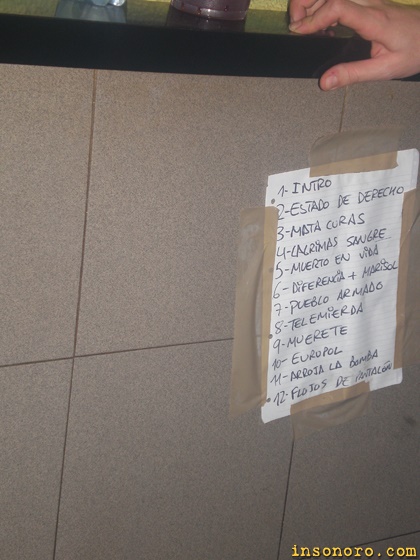 1- INTRO
2- ESTADO DE DERECHO
3- MATA CURAS
4- LAGRIMAS SANGRE
5- MUERTO EN VIDA
6- DIFERENCIA + MARISOL
7- PUEBLO ARMADO
8- TELEMIERDA
9- MUERETE
10- EUROPOL
11- ARROJA LA BOMBA
12- FLOJOS DE PANTALÓN
insonoro.com